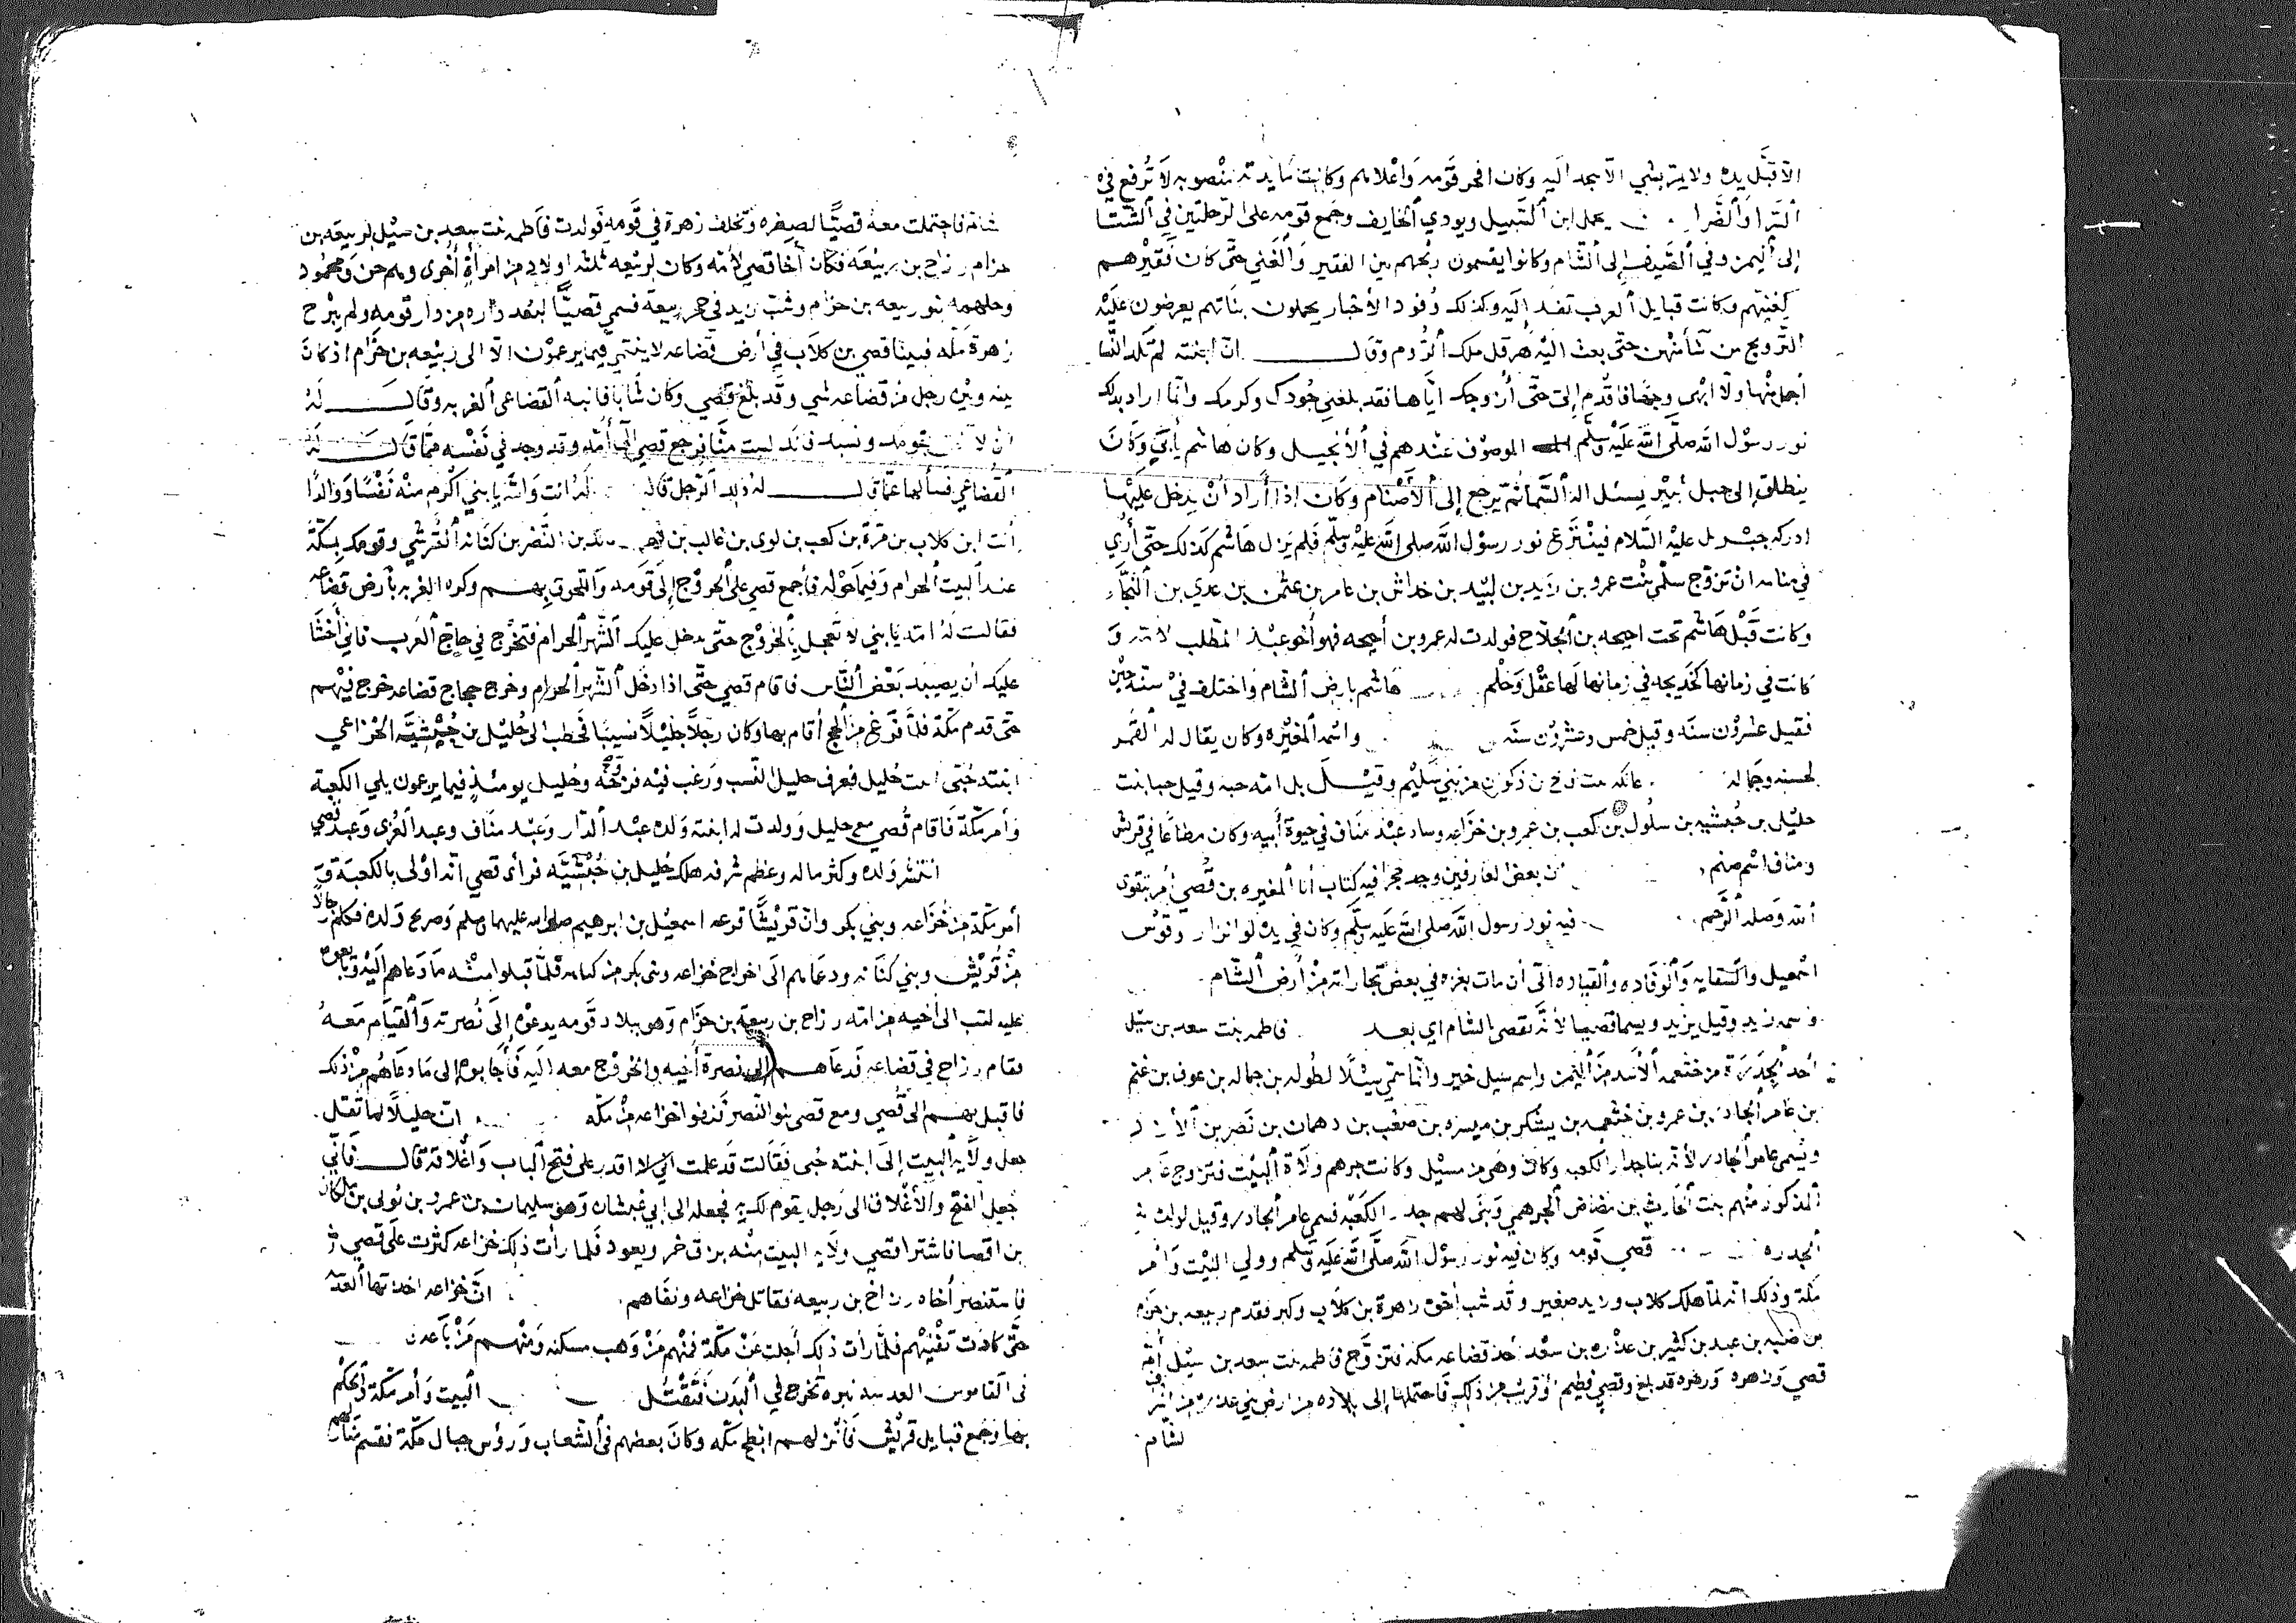 الا قبّل يده ولا يمر بشي الا سجد اليه وكان افخر قومه واعلاهم وكانت مايدته منصوبه لا ترفع في
السّرا والضّرا يحمل ابن السّبيل ويودي الخايف وجمع قومه على الرّحلتين في الشّتا
إلى اليمن وفي الصّيف إلى الشّام وكانوا يقسمون ربحهم بين الفقير والغني حتّى كان فقيرهم
كغنيّهم وكانت قبايل العرب تفد إليه وكذلك وفود الأحبار يحملون بناتهم يعرضون عليه
التّزويج من شأنهن حتى بعث اليه هرقل ملك الرّوم وقال انّ ابنته لم تلد النّسا
أجمل منها ولا ابهى وجها فاقدم إليّ حتّى أزوجك ايّاها فقد بلغني جودك وكرمك وانّما اراد بذلك
نور رسول الله صلّى الله عليه وسلّم الموصوف عندهم في الأنجيل وكان هاشم يأبى وكان
ينطلق إلى جبل ثبير يسئل اله السّما ثمّ يرجع إلى الأصنام وكان إذا أراد أن يدخل عليها
ادركه جبريل عليه السّلام فينتزع نور رسول الله صلى الله عليه وسلّم فلم يزل هاشم كذلك حتّى أُري
في منامه ان تزوّج سلمى بنت عمرو بن زيد بن لبيد بن خداش بن عامر بن عثمن بن عدي بن النّجّار
وكانت قبل هاشم تحت احيحه بن الجلاح فولدت له عمرو بن أحيحه فهو أخو عبد المطّلب لامّه و
كانت في زمانها كخديجه في زمانها لها عقل وحلم هاشم بارض الشام واختلف في سنّه حين
فقيل عشرون سنة وقيل خمس وعشرون سنة واسمه المغيره وكان يقال له القمر
لحسنه وجماله عاتكه بنت بن ذكوان من بني سليم وقيل بل امّه حبه وقيل حبا بنت
حليل بن حبشيه بن سلول بن كعب بن عمرو بن خزاعه وساد عبد مناف في حيوة أبيه وكان مطاعا في قريش
ومناف اسم صنم أن بعض العارفين وجد حجرا فيه كتاب أنا المغيره بن قصي أُمر بتقوى
الله وصلة الرّحم فيه نور رسول الله صلى الله عليه وسلّم وكان في يده لوا نزار وقوس
اسمعيل والسّقايه والوفاده والقياده الى أن مات بغزه في بعض تجاراته من أرض الشّام
واسمه زيد وقيل يزيد ويسما قصيا لأنّه تقصى الشام اي بعد فاطمه بنت سعد بن سيل
أحد الجدرة من خثعمه الأسد من اليمن واسم سيل خير وانّما سمّي سيلا لطوله بن حماله بن عوف بن غنم
بن عامر الجادر بن عمرو بن خثعمه بن يشكر بن ميسره بن صعب بن دهمان بن نصر بن الأزد
وتسمى عامر الجادر لأنّه بنا جدار الكعبه وكان وهى من سيل وكانت جرهم ولاة البيت فتزوج عامر
المذكور منهم بنت الحارث بن مضاض الجرهمي وبنى لهم جدر الكعبه فسمي عامر الجادر وقيل لولده
الجدره قصي قومه وكان فيه نور رسول الله صلّى الله عليه وسلم وولي البيت وأمر
مكة وذلك انه لمّا هلك كلاب وزيد صغير وقد شب اخوه زهرة بن كلاب وكبر فقدم ربيعه بن حرام
بن ضنّه بن عبد بن كثير بن عذره بن سعد أحد قضاعه مكه فتزوّج فاطمه بنت سعد بن سيل أمّ
قصي وزهره وزهره قد بلغ وقصي فطيم أو قريب من ذلك فاحتملها إلى بلاده من ارض بني عذرة من اشراف
الشام
شانه فاحتملت معها قصيّا لصغره وتخلف زهرة في قومه فولدت فاطمه بنت سعد بن سيل لربيعه بن
حزام رزاح بن ربيعه فكان أخا قصي لأمّه وكان لربيعه ثلثه اولاد من امرأة أخرى وهم حن ومحمود
وجلهمه بنو ربيعه بن حزام وشب زيد في حجر ربيعة فسمّي قصيّا لبعد داره من دار قومه ولم يبرح
زهرة مكّه فبينا قصي بن كلاب في أرض قضاعه لا ينتمي فيما يزعمون الاّ الى ربيعه بن حزام اذ كان
بينه وبين رجل من قضاعه شي وقد بلغ قصي وكان شابا فانبه القضاعي الغربه وقال له
ان لا بقومك ونسبك فانك لست منّا فرجع قصي الى أمّه وقد وجد في نفسه ممّا قال له
القضاعي فسألها عمّا قال له ذلك الرّجل قالت له أنت والله يا بني أكرم منه نفسا ووالدا
أنت ابن كلاب بن مرّة بن كعب بن لوي بن غالب بن فهر بن النّضر بن كنانه القرشي وقومك بمكّة
عند البيت الحرام وفيما حوله فأجمع قصي على الخروج إلى قومه واللّحوق بهم وكره الغربه بأرض قضاعه
فقالت له امه يا بني لا تعجل بالخروج حتّى يدخل عليك الشّهر الحرام فتخرج في حاج العرب فاني أخشا
عليك أن يصيبك بعض النّاس فاقام قصي حتّى اذا دخل الشّهر الحرام وخرج حجاج قضاعه خرج فيهم
حتى قدم مكّة فلمّا فرغ من الحج أقام بها وكان رجلا جليلا نسيبا فخطب الى حُليل بن حبشيّه الخزاعي
ابنته حُبّى بنت حُليل فعرف حليل النّسب ورغب فيه فزوجه وحُليل يومئذ فيما يزعمون يلي الكعبة
وأمر مكّة فأقام قُصي مع حليل وولدت له ابنته ولده عبد الدّار وعبد مناف وعبد العزى وعبد قصي
انتشر ولده وكثر ماله وعظم شرفه هلك حُليل بن حُبشيّه فرأى قصي انّه أولى بالكعبة و
أمر مكّة من خُزاعه وبني بكر وانّ قريشا فرعه اسمعيل بن ابرهيم صلى الله عليهما وسلم وصريح ولده فكلم رجالا
من قُريش وبني كنانه ودعاهم الى اخراج خزاعه وبني بكر من مكه فلمّا قبلوا منه ما دعاهم اليه وتابعوه
عليه كتب الى أخيه من امّه رزاح بن ربيعه بن حزام وهو ببلاد قومه يدعوه إلى نُصرته والقيام معه
فقام رزاح في قضاعه فدعاهم إلى نصرة أخيه والخروج معه اليه فأجابوه إلى ما دعاهم من ذلك
فاقبل بهم الى قُصي ومع قصي بنو النّضر فنفوا خزاعه من مكّه انّ حليلا لما ثقل
جعل ولاية البيت إلى ابنته حُبى فقالت قد علمت اني لا اقدر على فتح الباب وأغلاقه قال فاني
جعل الفتح والأغلاق الى رجل يقوم لك به فجعله الى ابي غبشان وهو سليمان بن عمرو بن بوي بن ملكان
بن اقصا فاشترا قصي ولايه البيت منه بزق خمر وبعود فلما رأت ذلك خزاعه كثرت على قصي
فاستنصر أخاه رزاح بن ربيعه فقاتل خزاعه ونفاهم انّ خزاعه اخذتها العدسه
حتّى كادت تفنيهم فلمّا رأت ذلك أجلت عن مكّة فمنهم من وهب مسكنه ومنهم من باعه
في القاموس العدسه بثره تخرج في البدن فتقتل البيت وأمر مكّة والحكم
بها وجمع قبايل قريش فأنزلهم ابطح مكّه وكان بعضهم في الشّعاب ورؤس جبال مكّة فقسم منازلهم